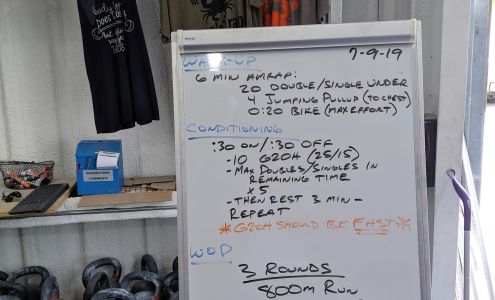 7-9-19
WARM-UP
6 MIN AMRAP:
20 DOUBLE/SINGLE UNDER
4 JUMPING PULLUP (TO CHEST)
0:20 BIKE (MAX EFFORT)
CONDITIONING
:30 ON/:30 OFF
-10 G2OH (25/15)
-MAX DOUBLES/SINGLES IN
REMAINING TIME
x5
-THEN REST 3 MIN-
REPEAT
*G2OH SHOULD BE FAST*
WOD
3 ROUNDS
800M RUN
SUGGESTIONS
COMMENTS